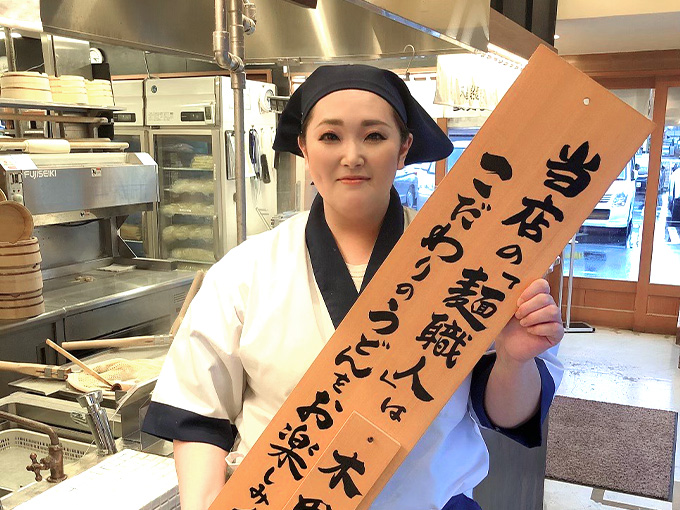 当店の「麺職人」は
こだわりのうどんをお楽しみ
木
FUJISEIKI